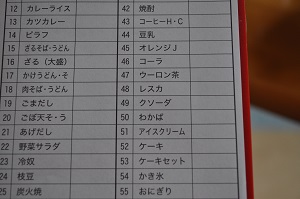 12 カレーライス 42 焼酎
13 カツカレー 43 コーヒーH・C
14 ピラフ 44 豆乳
15 ざるそば・うどん 45 オレンジJ
16 ざる(大盛) 46 コーラ
17 かけうどん・そ 47 ウーロン茶
18 肉そば・うどん 48 レスカ
19 ごまだし 49 クソーダ
20 ごぼ天そ・う 50 わかば
21 あげだし 51 アイスクリーム
22 野菜サラダ 52 ケーキ
23 冷奴 53 ケーキセット
24 枝豆 54 かき氷
25 炭火焼 55 おにぎり